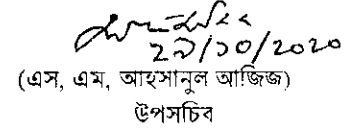 ২৯/১০/২০২০
(এস, এম, আহসানুল আজিজ)
উপসচিব